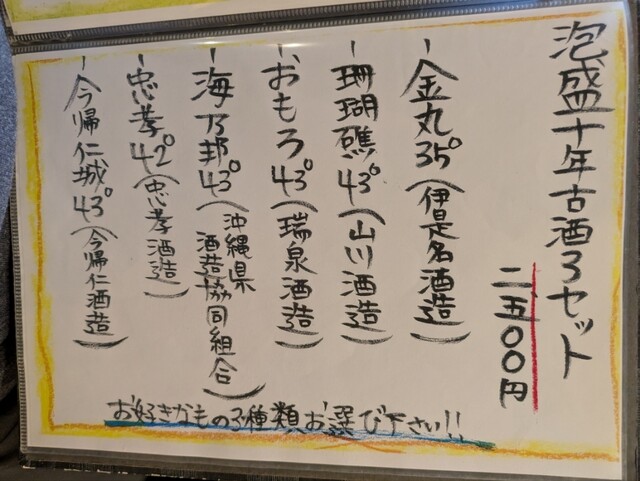 泡盛十年古酒3セット
二、五〇〇円
一金丸35°(伊是名酒造)
一珊瑚礁43°(山川酒造)
一おもろ43°(瑞泉酒造)
一海乃邦43°(沖縄県酒造協同組合)
一忠孝42°(忠孝酒造)
一今帰仁城43°(今帰仁酒造)
お好きなもの3種類お選び下さい!!